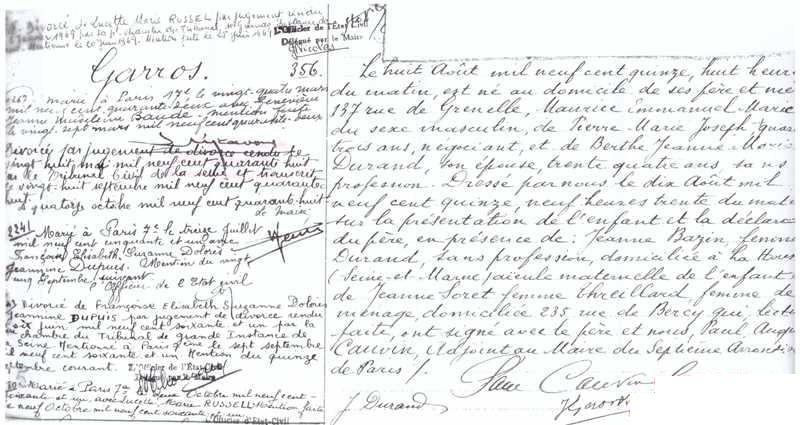 Divorcé de Lucette Marie RUSSEL par jugement rendu
1969 par la chambre du Tribunal de grande Instance de
Mentionné le 20 juin 1969. Mention faite le 25 juin 1969
L'Officier de l'Etat Civil
Délégué par le Maire
Garros.
356.
marié à Paris 17e le vingt-quatre mars
mil neuf cent quarante-deux avec Geneviève
Jeanne Baude. mention faite
le vingt sept mars mil neuf cent quarante-deux
Divorcé par jugement de divorce rendu le
vingt huit mai mil neuf cent quarante huit
par le Tribunal Civil de la Seine et transcrit
le vingt huit septembre mil neuf cent quarante
huit
quatorze octobre mil neuf cent quarante-huit
le Maire
2241 Marié à Paris 7e le treize juillet
mil neuf cent cinquante et un avec
Françoise Elisabeth Suzanne Dolorès
Jeannine Dupuis. Mention du vingt
cinq Septembre suivant
l'Officier de l'Etat civil
Divorcé de Françoise Elisabeth Suzanne Dolorès
Jeannine DUPUIS par jugement de divorce rendu
six juin mil neuf cent soixante et un par la
chambre du Tribunal de Grande Instance de
la Seine. Mentionné à Paris 9ème le sept septembre
mil neuf cent soixante et un Mention du quinze
septembre courant.
L'Officier de l'Etat Civil
Délégué par le Maire
Marié à Paris 7e le deux Octobre mil neuf cent
soixante et un, avec Lucette Marie RUSSELL. Mention faite
le neuf Octobre mil neuf cent soixante et un
L'Officier d'Etat-Civil
Le huit Août mil neuf cent quinze, huit heures
du matin, est né au domicile de ses père et mère
137 rue de Grenelle, Maurice Emmanuel Marie
du sexe masculin, de Pierre Marie Joseph, quarante
trois ans, négociant, et de Berthe Jeanne Marie
Durand, son épouse, trente quatre ans, sans
profession. Dressé par nous le dix Août mil
neuf cent quinze, neuf heures trente du matin
sur la présentation de l'enfant et la déclaration
du père, en présence de : Jeanne Bazin, femme
Durand, sans profession, domiciliée à
(Seine-et-Marne) aïeule maternelle de l'enfant
de Jeanne Soret femme femme de
ménage, domiciliée 235 rue de Bercy qui, lecture
faite, ont signé avec le père et nous, Paul
Cauvin, Adjoint au Maire du Septième Arrondissement
de Paris /.
Paul Cauvin
J. Durand